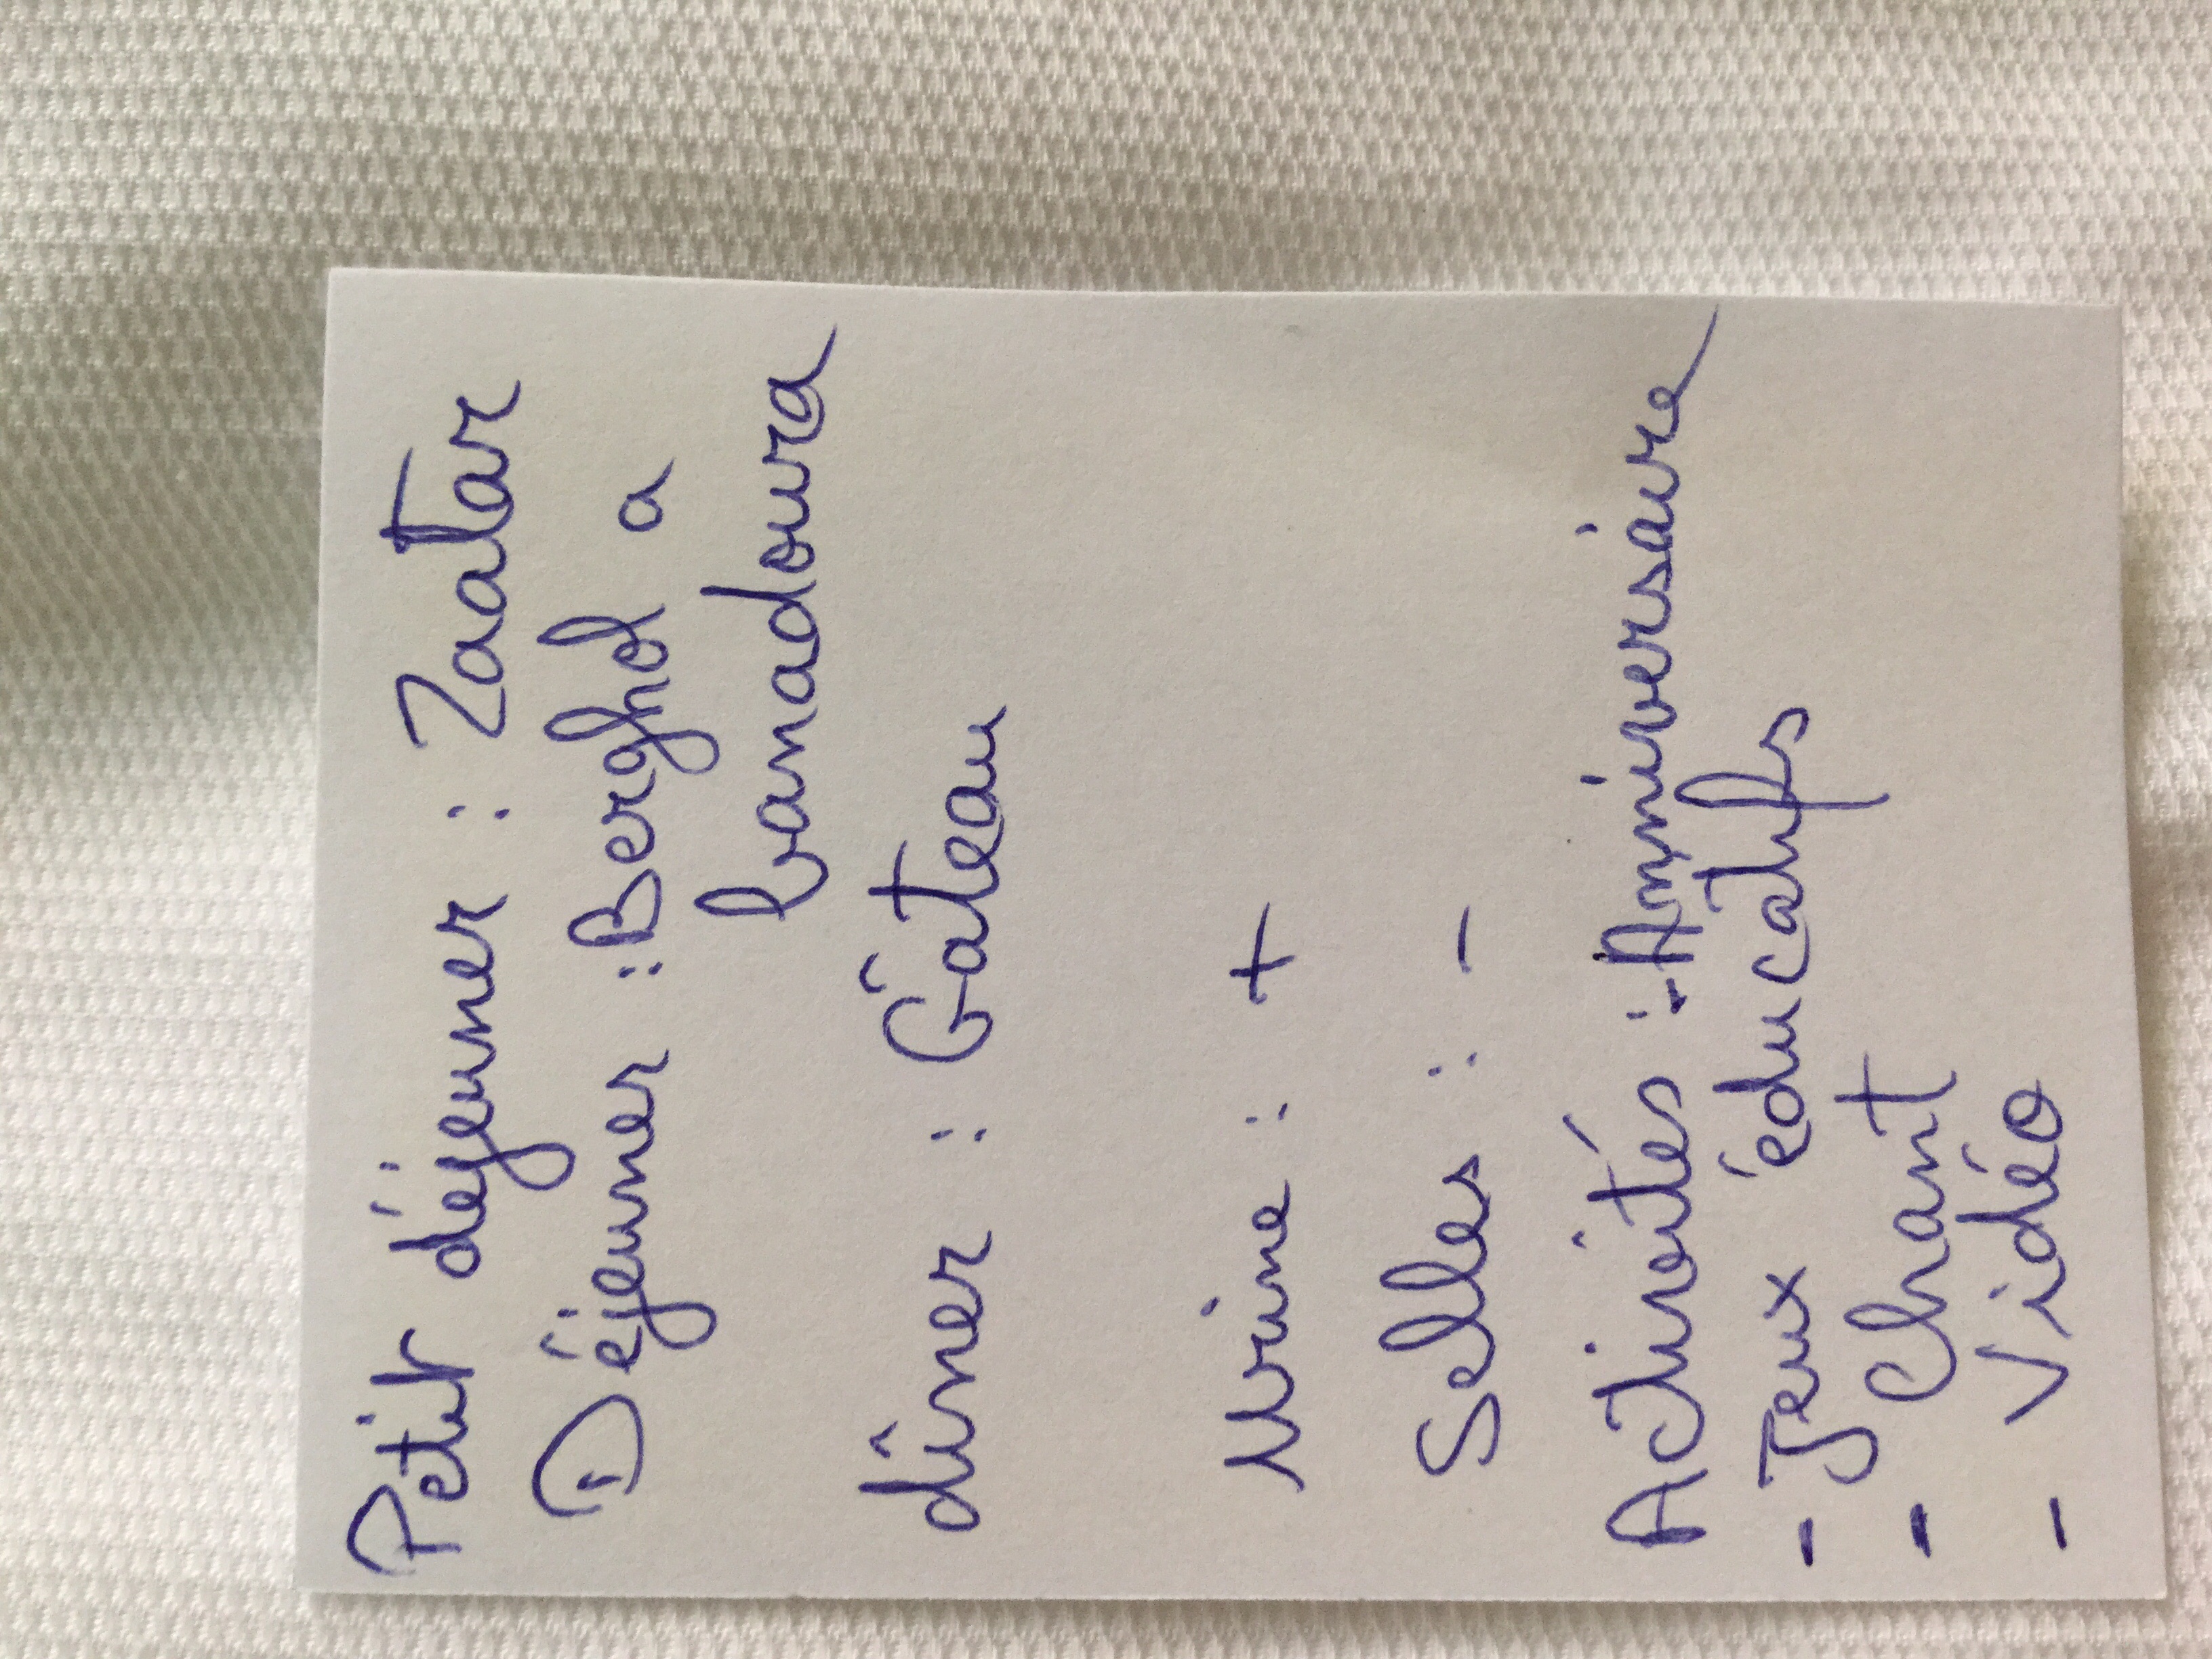 Petit déjeuner : Zaatar
Déjeuner : Berghol a
banadoura
dîner : Gâteau
Urine : +
Selles : -
Activités : - Anniversaire
- Jeux éducatifs
- Chant
- Vidéo